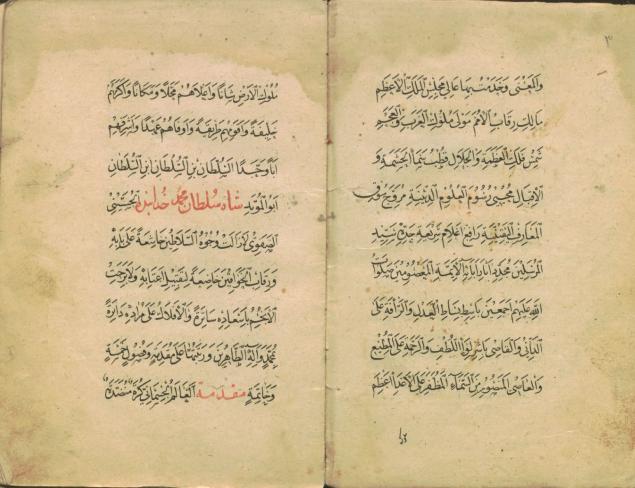 والمعنى وخدمت بها عالي مجلس الملك الاعظم
مالك رقاب الامم مولى ملوك العرب والعجم
شمس فلك العظمة والجلال قطب سماء الحشمة و
الاقبال محيي رسوم العلوم الدينية مروج
المعارف اليقينية رافع اعلام شريعة جده سيد
المرسلين مجدد آثار آبائه الائمة المعصومين صلوات
الله عليهم اجمعين باسط بساط العدل والرأفة على
الداني والقاصي ناشر لواء اللطف والرحمة على المطيع
والعاصي المنصور من السماء المظفر على الاعداء اعظم
ملوك الارض شانا واعلاهم محلا ومكانا واكرمهم
خليقة واقومهم طريقة واوفاهم عهدا واشرفهم
ابا وجدا السلطان بن السلطان ابن السلطان
ابو المؤيد شاه سلطان محمد خدابنده الحسيني
الصفوي لا زالت وجوه السلاطين خاشعة على بابه
ورقاب الخواقين خاضعة لتقبيل اعتابه ولا برحت
الانجم باسعاده سائرة والافلاك على مراده دائرة
بمحمد وآله الطاهرين ورتبتها على مقدمة وفصول خمسة
وخاتمة مقدمة العالم الجسماني كرة